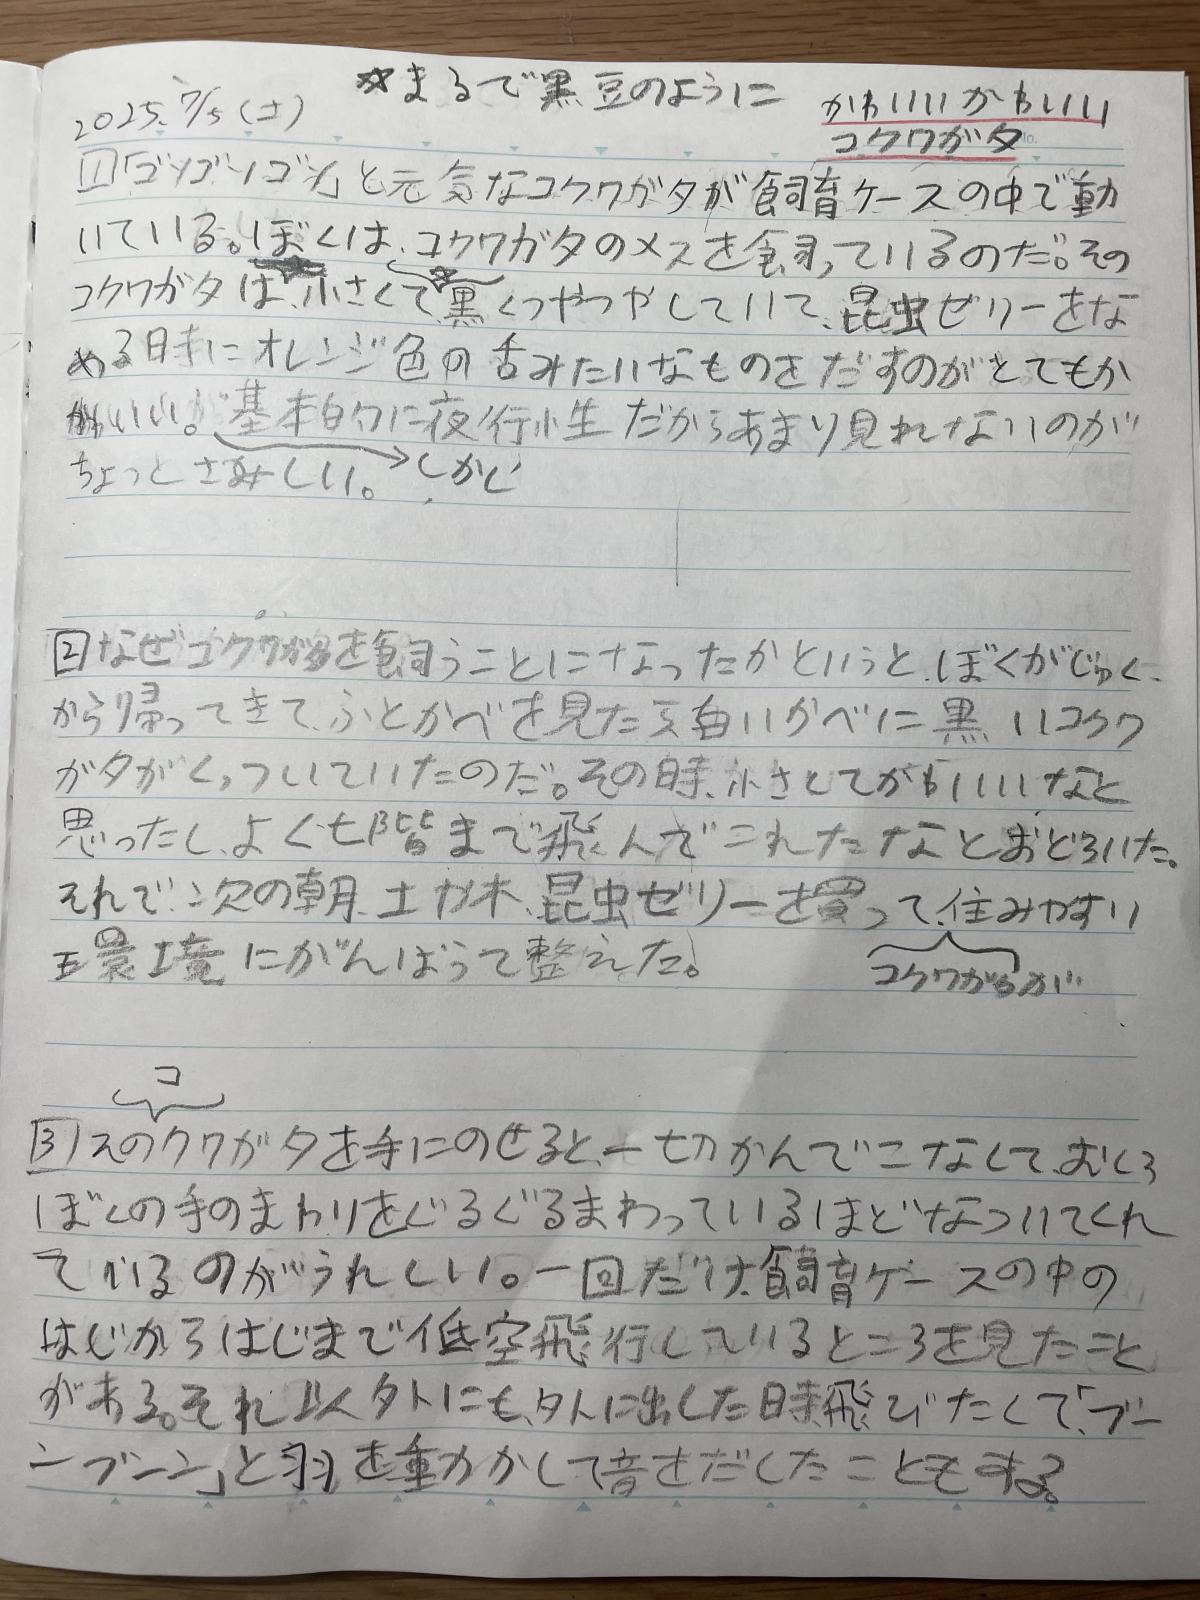 ☆まるで黒豆のように
かわいいいかわいいい
コクワガタ
2025. 7/5 (土)
1「ゴソゴソゴソ」と元気なコクワガタが飼育ケースの中で動
いている。ぼくは、コクワガタのメスを飼っているのだ。その
コクワガタは、小さくて、黒くつやつやしていて、昆虫ゼリーをな
める時にオレンジ色の舌みたいなものをだすのがとてもか
わいい。基本的に夜行小生だからあまり見れないのが
ちょっとさみしい。 しかし
2 なぜコクワガタを飼うことになったかというと、ぼくがじゅく
から帰ってきて、ふとかべを見たら白いかべに黒いコクワ
ガタがくっついていたのだ。その時、小さとてかわいいいなと
思ったし、よく七階まで飛んでこれたなとおどろいた。
それで、次の朝、土や木、昆虫ゼリーを買って、住みやすい
環境にがんばって整えた。
コクワガタが
コ
3 スのクワガタを手にのせると、一切かんでこなくて、むしろ
ぼくの手のまわりをぐるぐるまわっているほどなついてくれ
ているのがうれしい。一回だけ、飼育ケースの中の
はじからはじまで低空飛行しているところを見たこと
がある。それ以外にも、外に出した時、飛びたくて、「ブー
ンブーン」と羽を動かして音をだしたこともする。